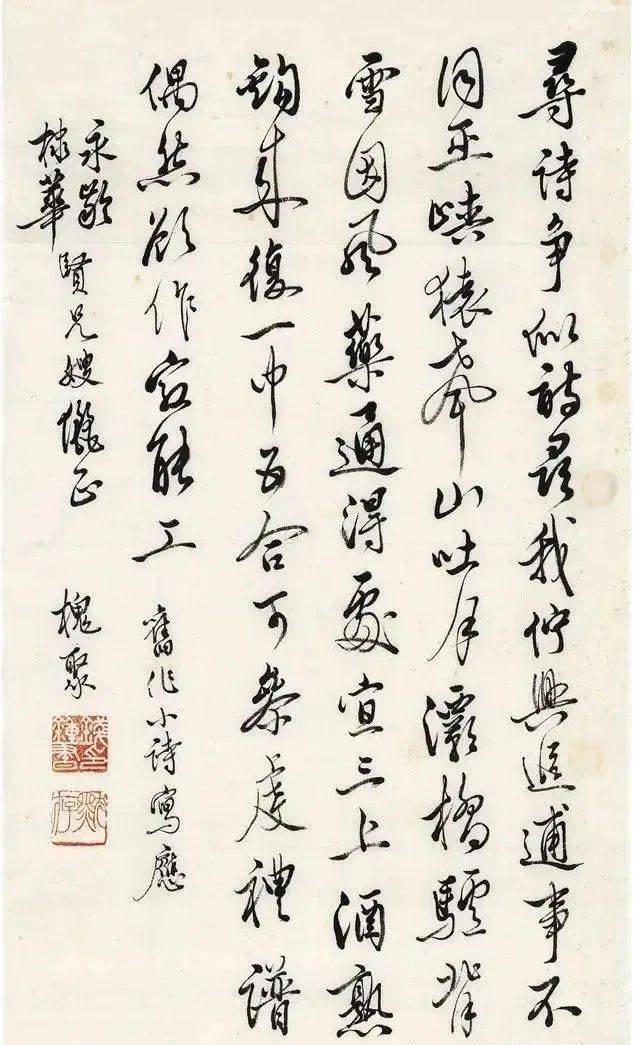 尋詩争似詩尋我佇興追逋事不
同巫峽猿聲山吐月灞橋驢背
雪因風藥通得處宜三上酒熟
鈎來復一中五合可參虔禮譜
偶然欲作最能工
舊作小詩寫應
永齡
棣華
賢兄嫂儷正
槐聚
錢鍾書印
默存